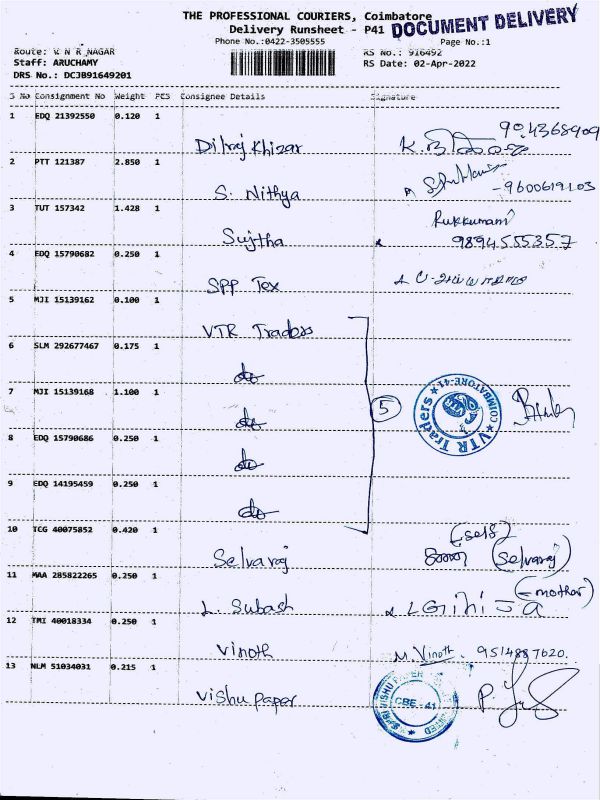 THE PROFESSIONAL COURIERS, Coimbatore
DOCUMENT DELIVERY
Delivery Runsheet - P41
Phone No.:0422-3505555
Page No.:1
Route: V N R NAGAR
RS No.: 916492
Staff: ARUCHAMY
RS Date: 02-Apr-2022
DRS No.: DCJB91649201
S No Consignment No Weight PCS Consignee Details Signature
1 EDQ 21392550 0.120 1 Dilraj Khizar
2 PTT 121387 2.850 1 S. Nithya 9600619103
3 TUT 157342 1.428 1 Sujtha Rukkumani 9894555357
4 EDQ 15790682 0.250 1 SPP Tex
5 MJI 15139162 0.100 1 VTR Traders
6 SLM 292677467 0.175 1 do
7 MJI 15139168 1.100 1 do 5 VTR Traders COIMBATORE-41
8 EDQ 15790686 0.250 1 do
9 EDQ 14195459 0.250 1 do
10 TCG 40075852 0.420 1 Selvaraj (self) (Selvaraj)
11 MAA 285822265 0.250 1 L. Subash (mother)
12 TMI 40018334 0.250 1 Vinoth M. Vinoth. 9514887620.
13 NLM 51034031 0.215 1 Vishu Paper CBE-41